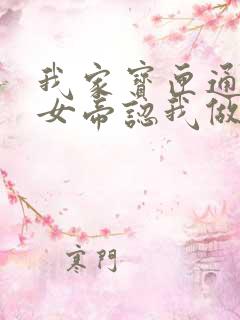 我家寶匣通
女帝認我做
寒門